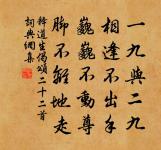 一九與二九
相逢不出手
巍巍不動尊
腳不地走
釋道生偈頌二十二首
詞典網集